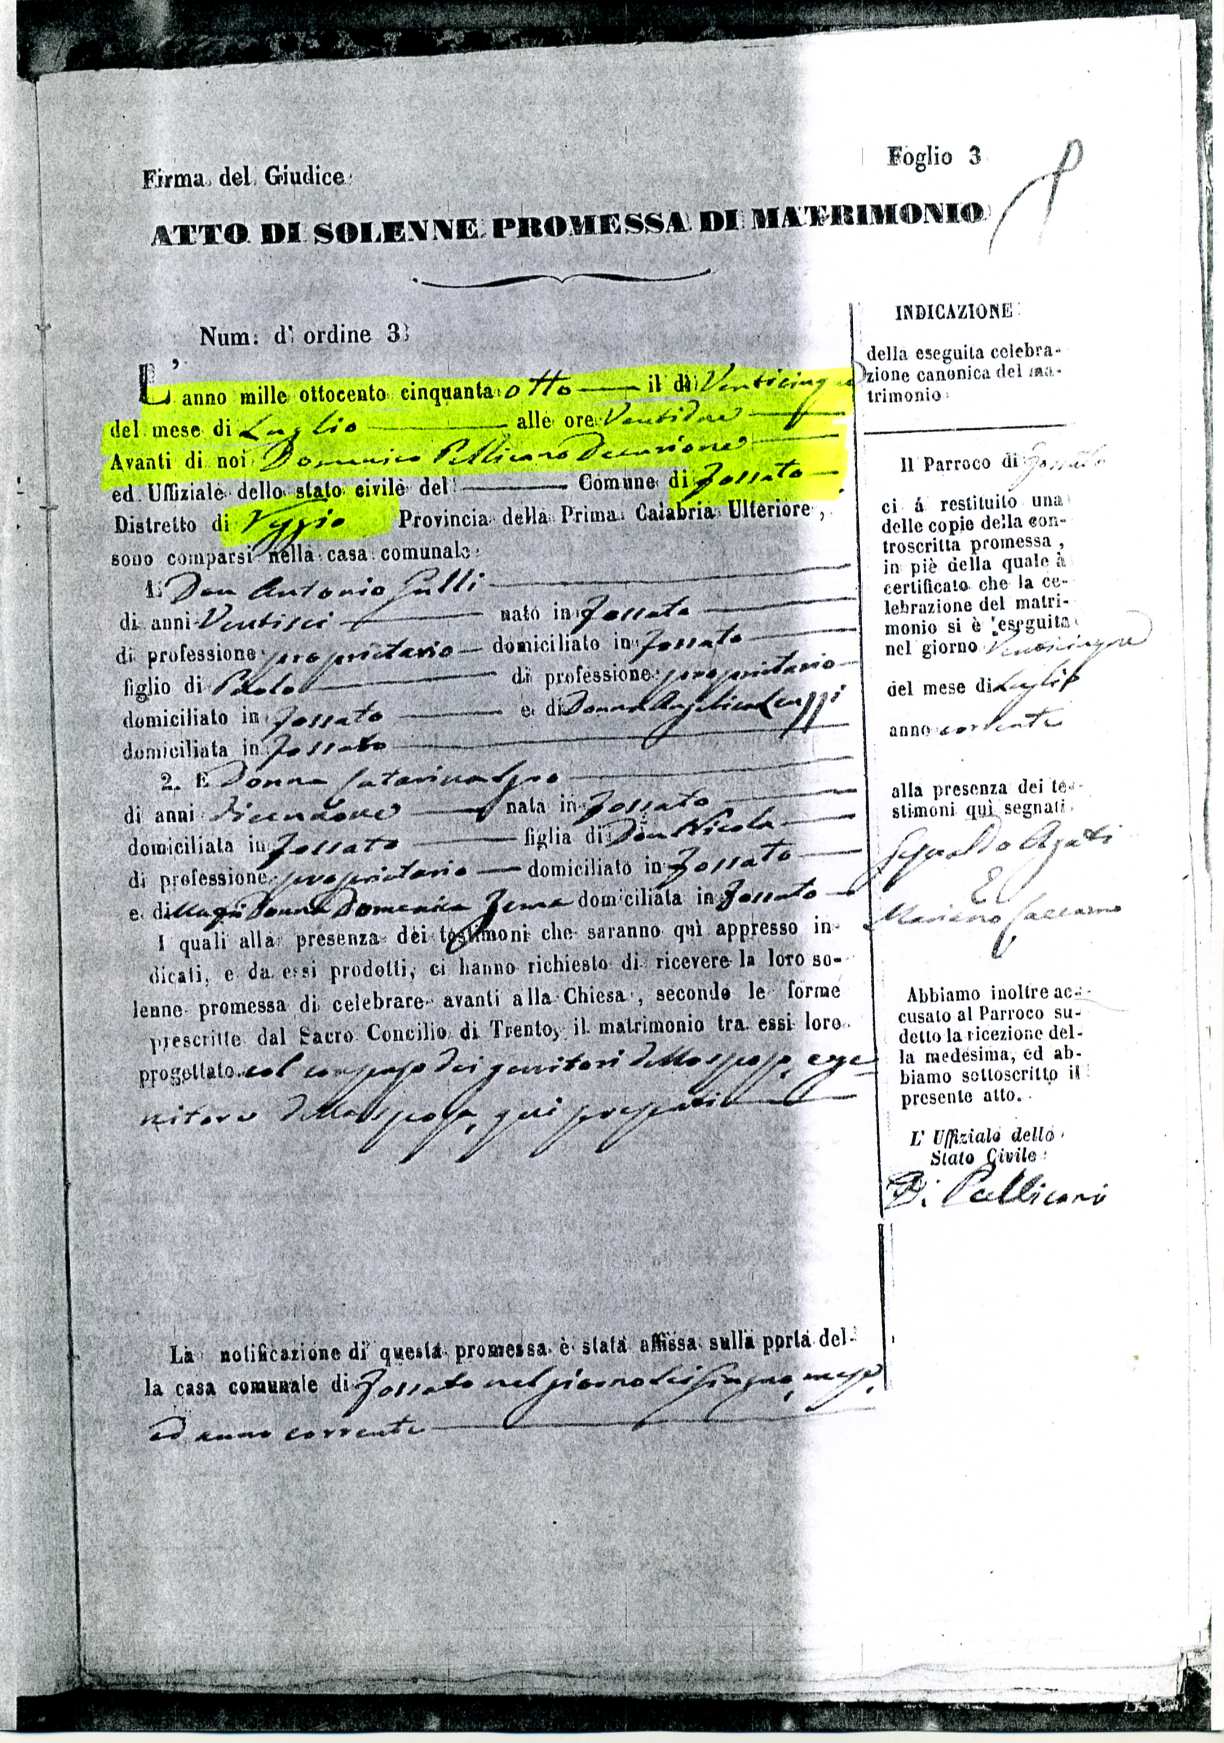 Foglio 3
Firma del Giudice
ATTO DI SOLENNE PROMESSA DI MATRIMONIO
Num: d' ordine 3
L' anno mille ottocento cinquanta otto il dì Venticinque
del mese di Luglio alle ore Ventidue
Avanti di noi Domenico Pellicano Decurione
ed Uffiziale dello stato civile del Comune di Fossato
Distretto di Reggio Provincia della Prima Calabria Ulteriore,
sono comparsi nella casa comunale
1. Don Antonio Gulli
di anni Ventisei nato in Fossato
di professione proprietario domiciliato in Fossato
figlio di Paolo di professione proprietario
domiciliato in Fossato e di Donna Angelica
domiciliata in Fossato
2. E Donna Catarina
di anni nata in Fossato
domiciliata in Fossato figlia di Don Nicola
di professione proprietario domiciliato in Fossato
e di Donna Domenica Zema domiciliata in Fossato
I quali alla presenza dei testimoni che saranno quì appresso in-
dicati, e da essi prodotti, ci hanno richiesto di ricevere la loro so-
lenne promessa di celebrare avanti alla Chiesa, secondo le forme
prescritte dal Sacro Concilio di Trento, il matrimonio tra essi loro
progettato col dei genitori dello sposo, e ge-
nitore della sposa, qui
La notificazione di questa promessa è stata affissa sulla porta del-
la casa comunale di Fossato nel giorno sei Giugno,
ed anno corrente
INDICAZIONE
della eseguita celebra-
zione canonica del ma-
trimonio
Il Parroco di Fossato
ci á restituito una
delle copie della con-
troscritta promessa,
in piè della quale à
certificato che la ce-
lebrazione del matri-
monio si è eseguita
nel giorno Venticinque
del mese di Luglio
anno corrente
alla presenza dei te-
stimoni quì segnati
E
Mariano
Abbiamo inoltre ac-
cusato al Parroco su-
detto la ricezione del-
la medesima, ed ab-
biamo sottoscritto il
presente atto.
L' Uffiziale dello
Stato Civile
D. Pellicanò